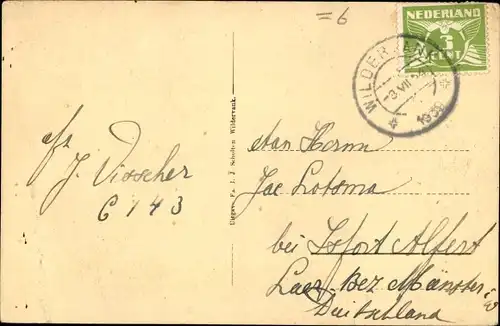 =6
NEDERLAND
3
CENT
WILDERVANK
1939
afz
J. Visscher
C 143
Uitgev. Fa. I. J. Scholten Wildervank.
den Herrn
Jac Lotsma
bei Isfort Alfert
Laer. Bez Münster i/W
Deutschland